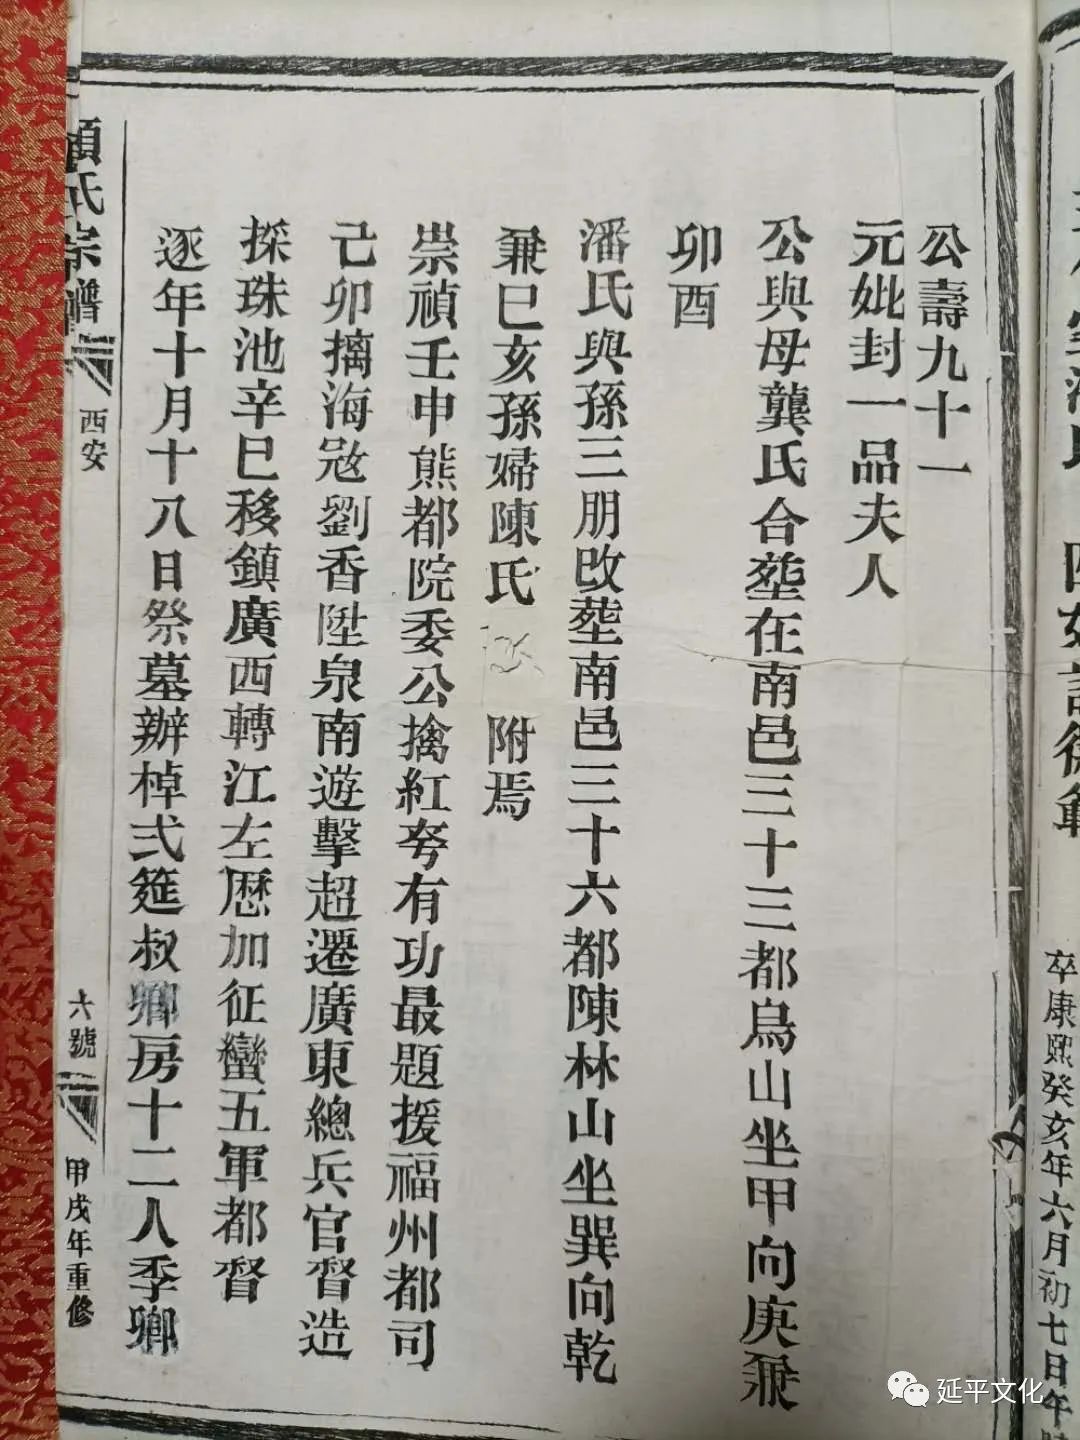 卒康熙癸亥年六月初七日午時
公壽九十一
元妣封一品夫人
公與母龔氏合塟在南邑三十三都烏山坐甲向庚兼
卯酉
潘氏與孫三朋改塟南邑三十六都陳林山坐巽向乾
兼巳亥孫婦陳氏 附焉
崇禎壬申熊都院委公擒紅夸有功最題援福州都司
己卯擒海宼劉香陞泉南遊擊超遷廣東總兵官督造
採珠池辛巳移鎮廣西轉江左歷加征蠻五軍都督
逐年十月十八日祭墓辦棹弍筵叔鄉房十二人季鄉
氏宗譜 西安 六號 甲戌年重修
延平文化